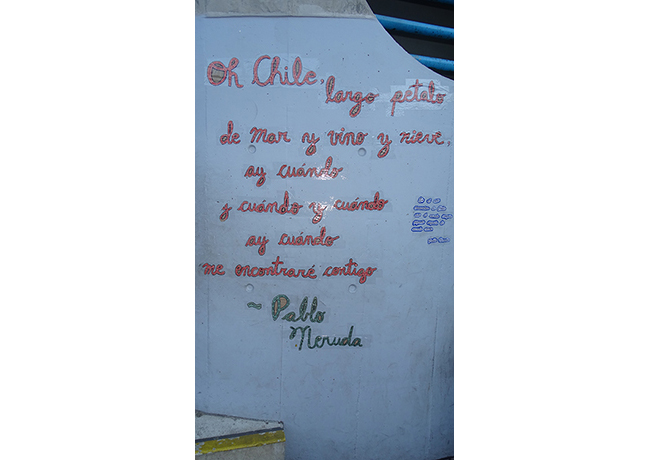 Oh Chile, largo pétalo
de mar y vino y nieve,
ay cuándo
y cuándo y cuándo
ay cuándo
me encontraré contigo
~ Pablo
Neruda